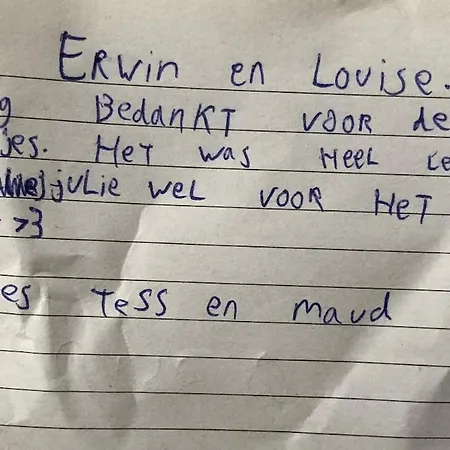 ERwin en Louise.
g BedanKT VOOR de
jes. HeT was HEEL Le
julie wel VOOR HeT
>3
es Tess en maud